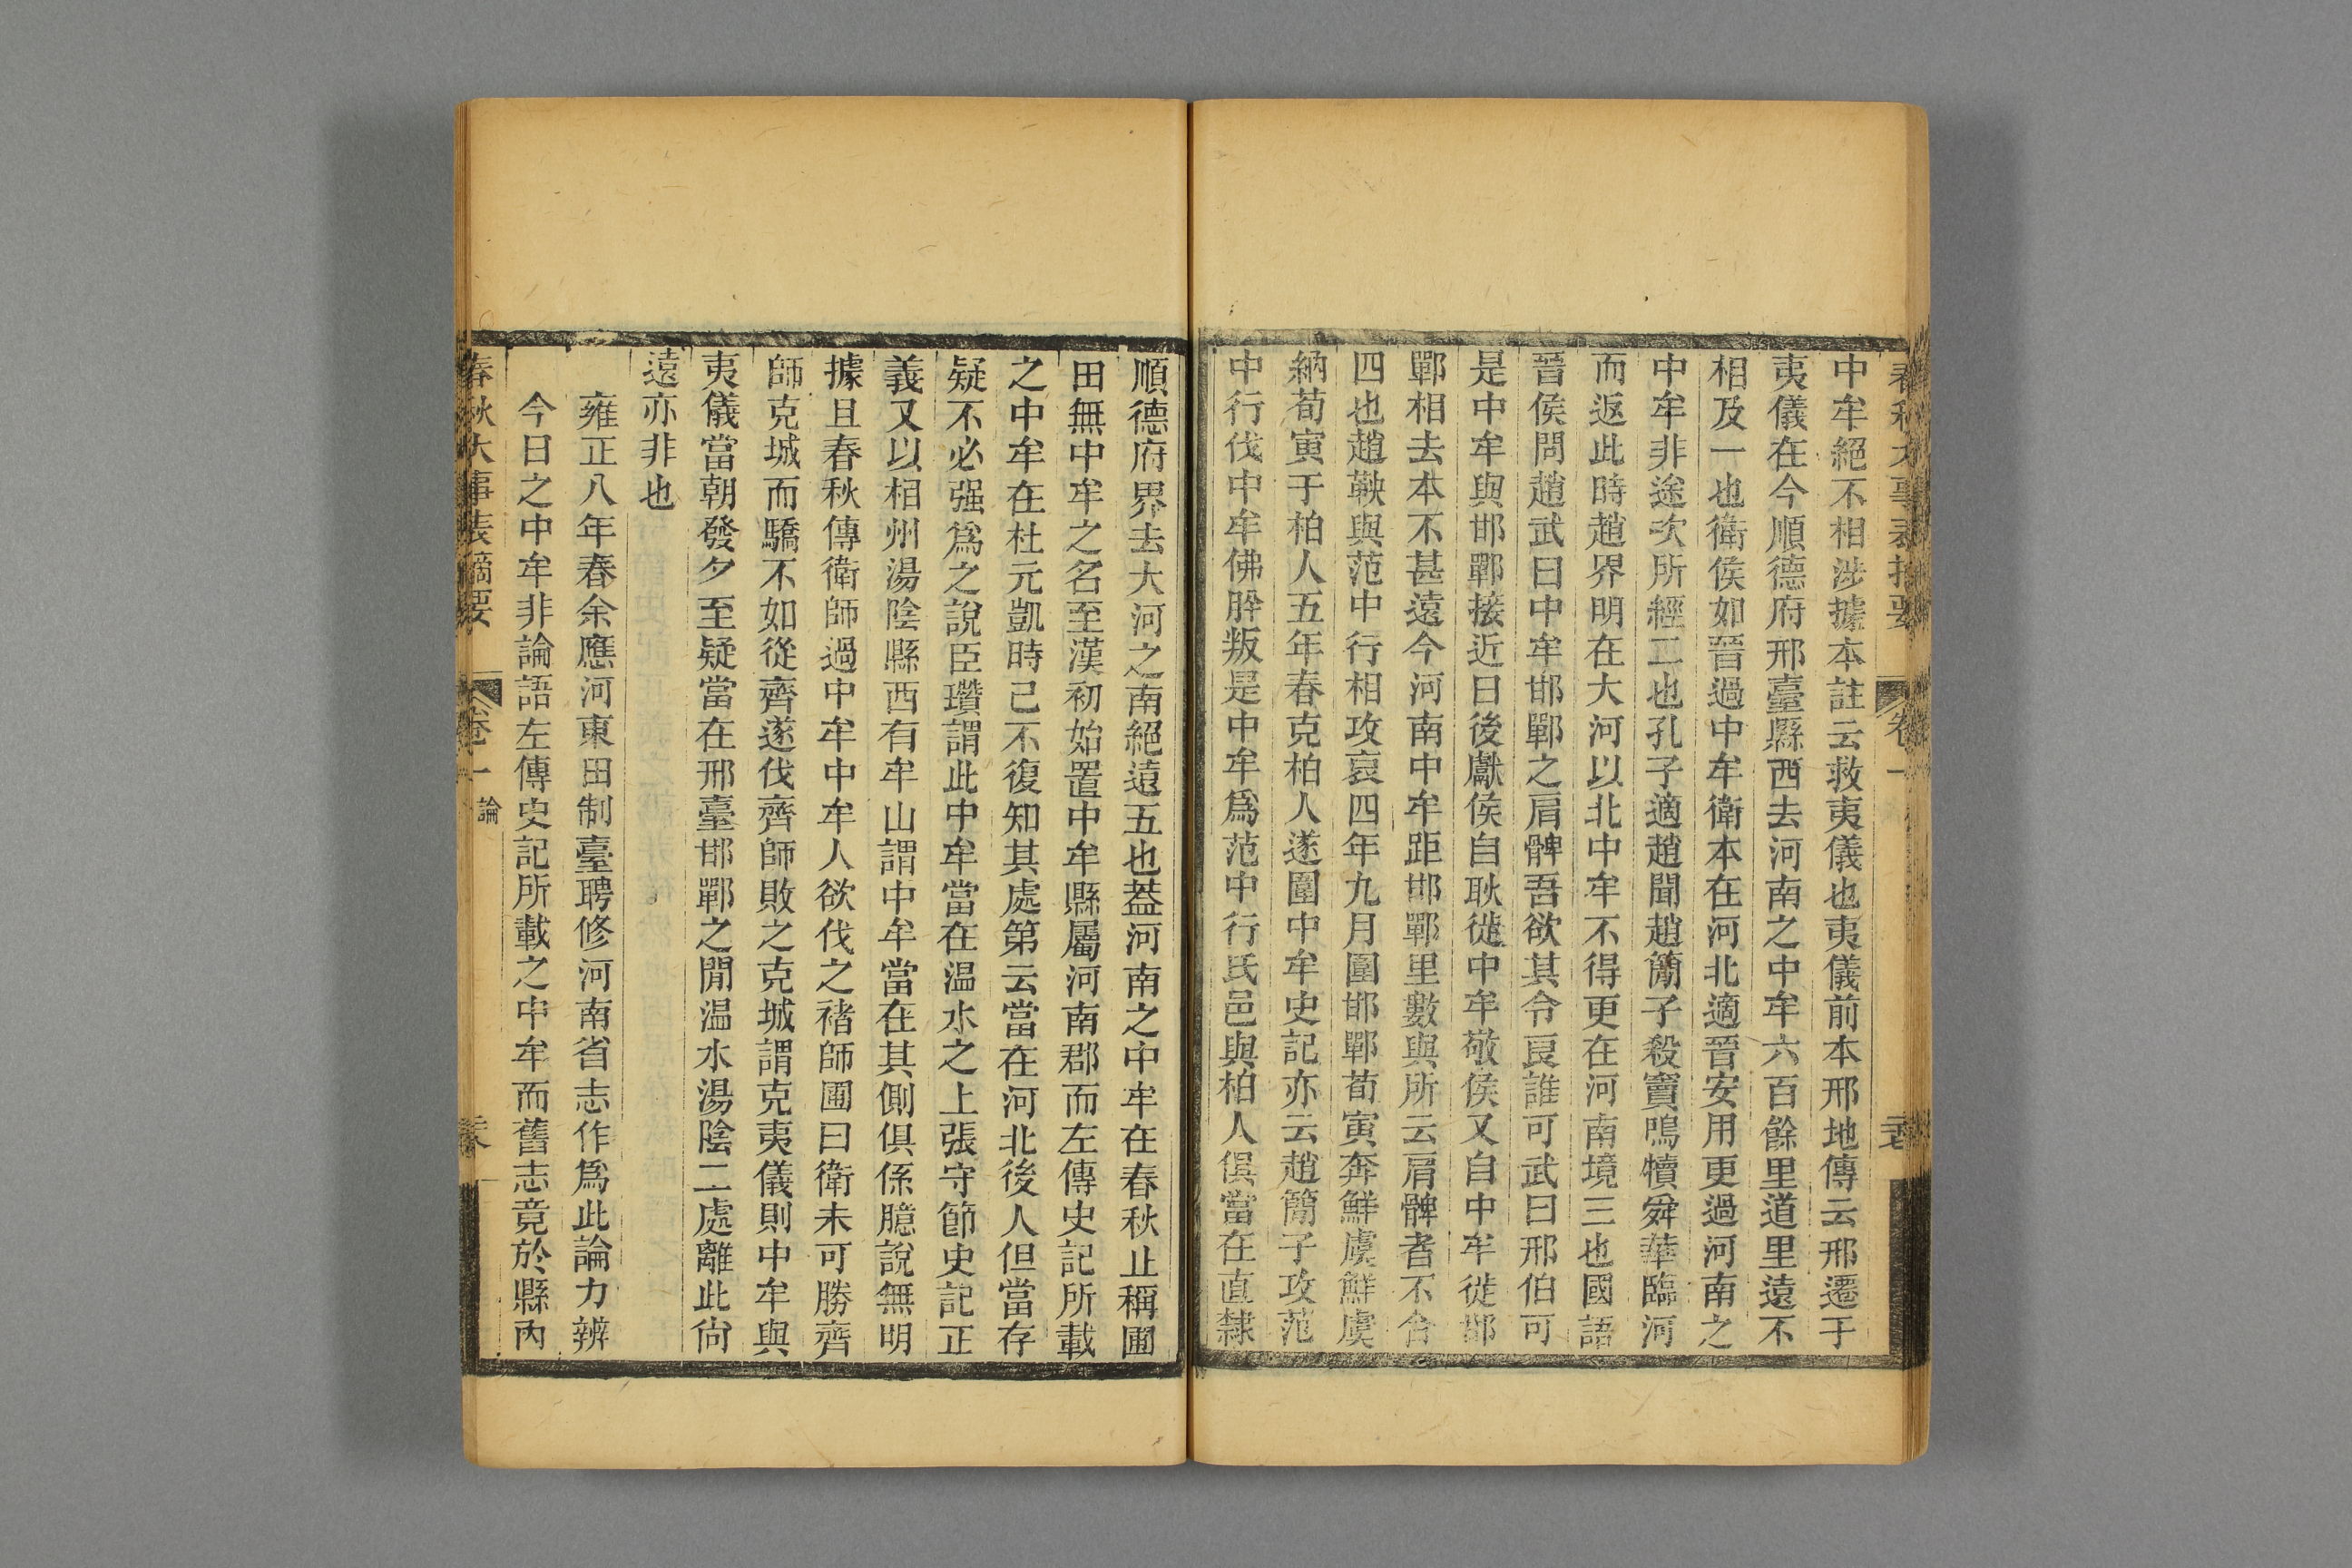 中牟絕不相涉據本註云救夷儀也夷儀前本邢地傳云邢遷于
夷儀在今順德府邢臺縣西去河南之中牟六百餘里道里遠不
相及一也衛侯如晉過中牟衛本在河北適晉安用更過河南之
中牟非途次所經二也孔子適趙聞趙簡子殺竇鳴犢舜華臨河
而返此時趙界明在大河以北中牟不得更在河南境三也國語
晉侯問趙武曰中牟邯鄲之肩髀吾欲其令良誰可武曰邢伯可
是中牟與邯鄲接近日後獻侯自耿徙中牟敬侯又自中牟徙邯
鄲相去本不甚遠今河南中牟距邯鄲里數與所云肩髀者不合
四也趙鞅與范中行相攻哀四年九月圍邯鄲荀寅奔鮮虞鮮虞
納荀寅于柏人五年春克柏人遂圍中牟史記亦云趙簡子攻范
中行伐中牟佛肸叛是中牟為范中行氏邑與柏人俱當在直隸
順德府界去大河之南絕遠五也蓋河南之中牟在春秋止稱圃
田無中牟之名至漢初始置中牟縣屬河南郡而左傳史記所載
之中牟在杜元凱時已不復知其處第云當在河北後人但當存
疑不必强為之說臣瓚謂此中牟當在温水之上張守節史記正
義又以相州湯陰縣西有牟山謂中牟當在其側俱係臆說無明
據且春秋傳衛師過中牟中牟人欲伐之褚師圃曰衛未可勝齊
師克城而驕不如從齊遂伐齊師敗之克城謂克夷儀則中牟與
夷儀當朝發夕至疑當在邢臺邯鄲之閒温水湯陰二處離此尚
遠亦非也
雍正八年春余應河東田制臺聘修河南省志作為此論力辨
今日之中牟非論語左傳史記所載之中牟而舊志竟於縣內
春秋大事表摘要 卷一 論